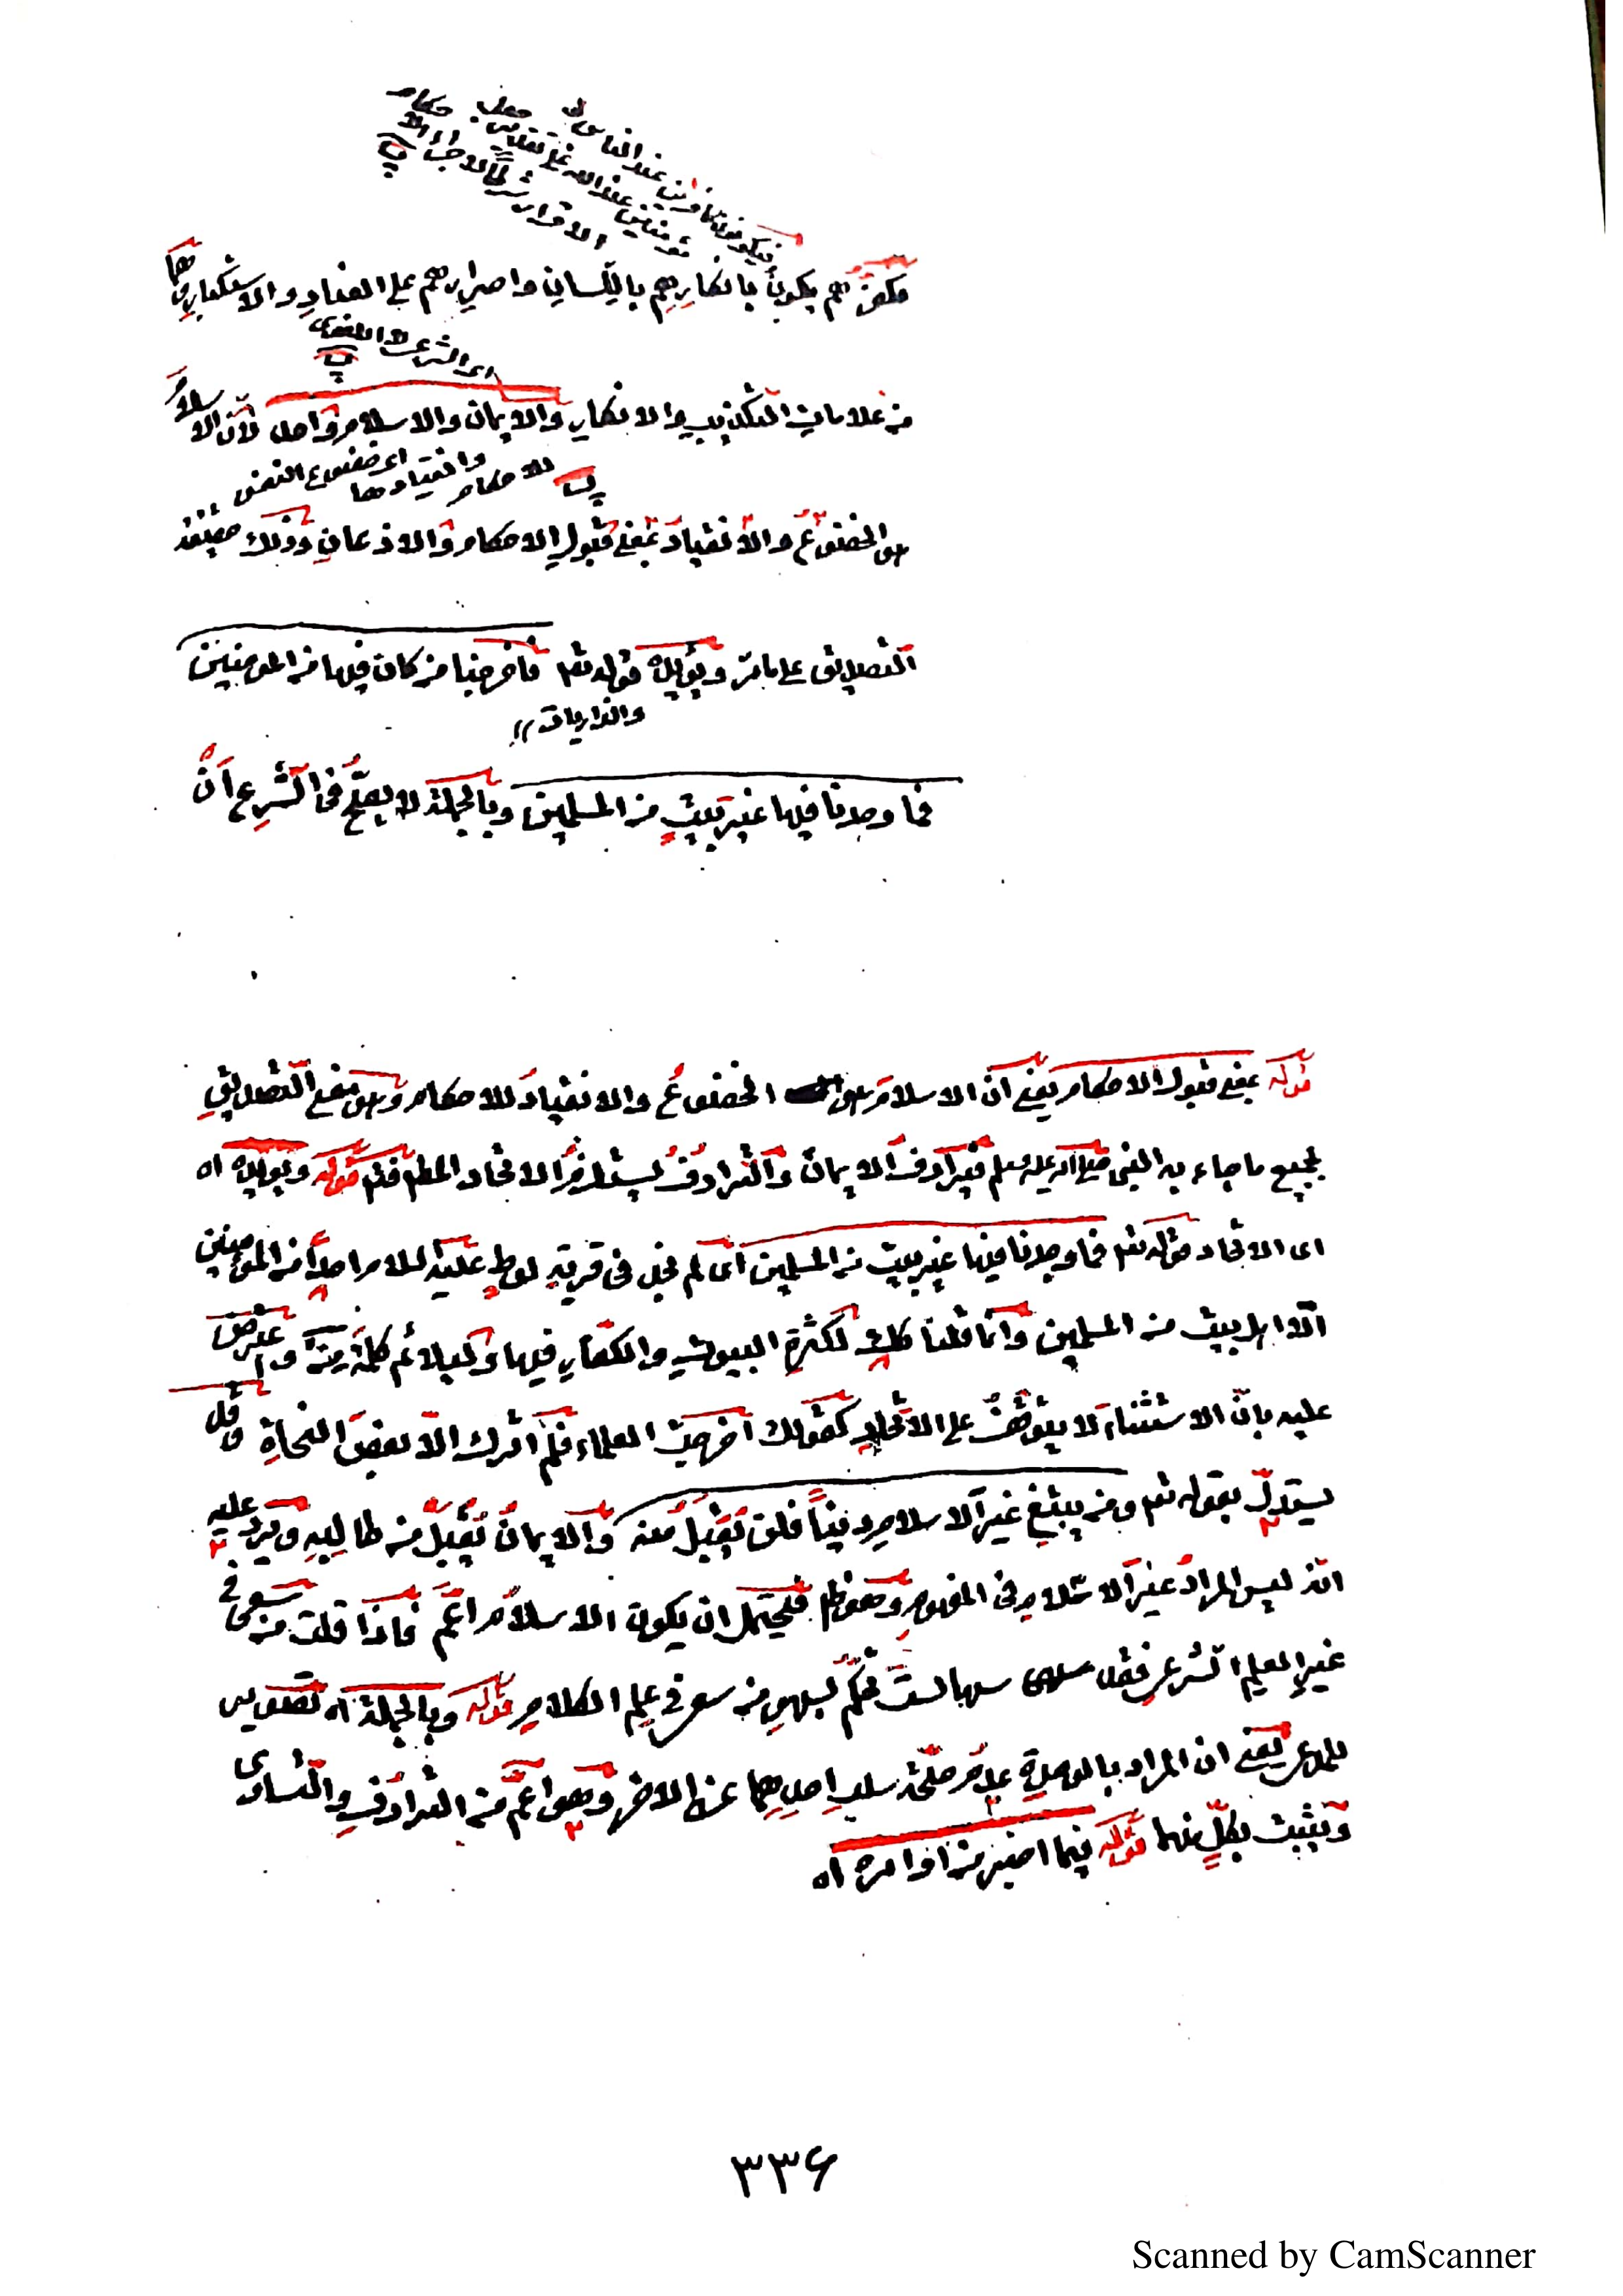 فيكونون كافرين عند الناس
مؤمنين عند الله على تقدير جعل
الاقرار شرطا لاجراء الاحكام
فكفرُهم يكون بانكارِهم باللّسانِ واصرارِهم على العنادِ والاستكبارِ وهما
اى الشرعى لا اللغوى
من علاماتِ التكذيبِ والانكارِ والايمان والاسلام واحد لانّ الاسلامَ
اى خضوع النفس وانقيادها للاحكام
هو الخضوعُ والانقيادُ بمعنى قبولِ الاحكام والاذعانِ وذلك حقيقة
التصديق على ما مرّ ويؤيده قوله تعـ فاخرجنا من كان فيها من المؤمنين
والذاريات
فما وجدنا فيها غير بيتٍ من المسلمين وبالجملة لا يصحّ فى الشرع انْ
قوله بمعنى قبول الاحكام يعنى انّ الاسلامَ هو الخضوعُ والانقيادُ للاحكام وهو معنى التصديقِ
بجميع ما جاء به النبى صلى الله عليه وسلم فيرادف الايمان والترادفُ يستلزم الاتحاد المطـ فتـ قوله ويؤيده اه
اى الاتحاد قوله تعـ فما وجدنا فيها غير بيت من المسلمين اى لم نجد فى قرية لوطٍ عليه السلام احداً من المؤمنين
الّا اهل بيت من المسلمين وانّما قلنا كذلك لكثرةِ البيوتِ والكفارِ فيها وليلائم كلمةَ مِن واعترض
عليه بانّ الاستثناءَ لا يتوقّف على الاتحادِ كقولك اخرجت العلماء فلم اترك الّا بعضَ النحاةِ وقد
يستدلّ بقوله تعـ ومن يبتغ غيرَ الاسلام ديناً فلن يقبلَ منه والايمانُ يُقبلُ من طالبِه ويرد عليه
انّه ليس المرادُ غيرَ الاسلام فى المفهوم وهو ظـ فيحتمل ان يكون الاسلامُ اعمّ فاذا قلت من سعى فى
غيرِ العلم الشرعى فقد سهى سهى لستَ تحكم بسهوِ من سعى فى علم الكلام قوله وبالجملة اه تصوير
للمدعى يعنى ان المراد بالوحدةِ عدمُ صحّة سلبِ احدِهما عن الاخر وهو اعمّ من الترادفِ والتساوى
ويثبت بكلٍّ منهما قوله فيما اخبر من اوامره اه
٣٣٦
Scanned by CamScanner